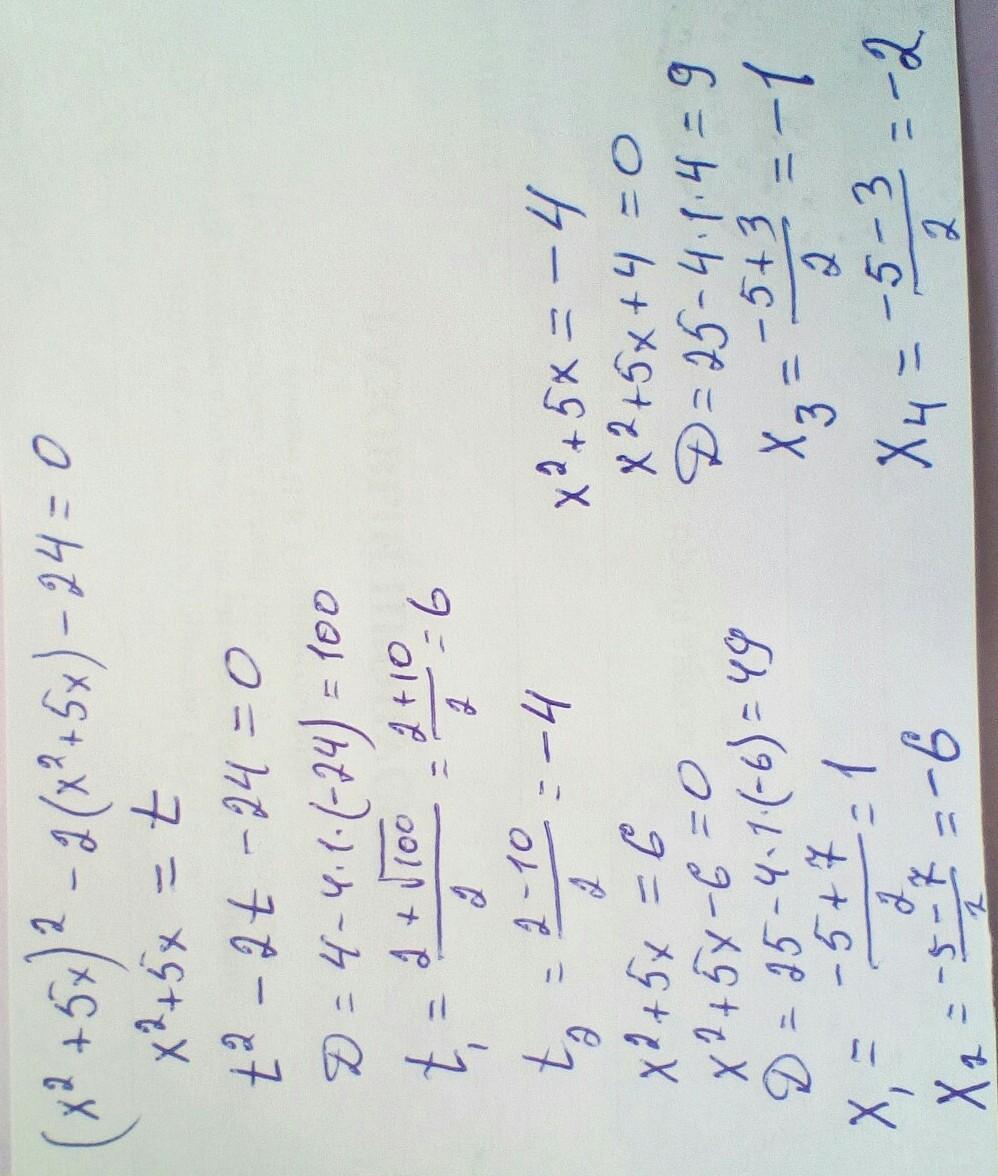 (x²+5x)²-2(x²+5x)-24=0
x²+5x=t
t²-2t-24=0
D=4-4·1·(-24)=100
t₁=(2+√100)/2=(2+10)/2=6
t₂=(2-10)/2=-4
x²+5x=6
x²+5x-6=0
D=25-4·1·(-6)=49
x₁=(-5+7)/2=1
x₂=(-5-7)/2=-6
x²+5x=-4
x²+5x+4=0
D=25-4·1·4=9
x₃=(-5+3)/2=-1
x₄=(-5-3)/2=-2